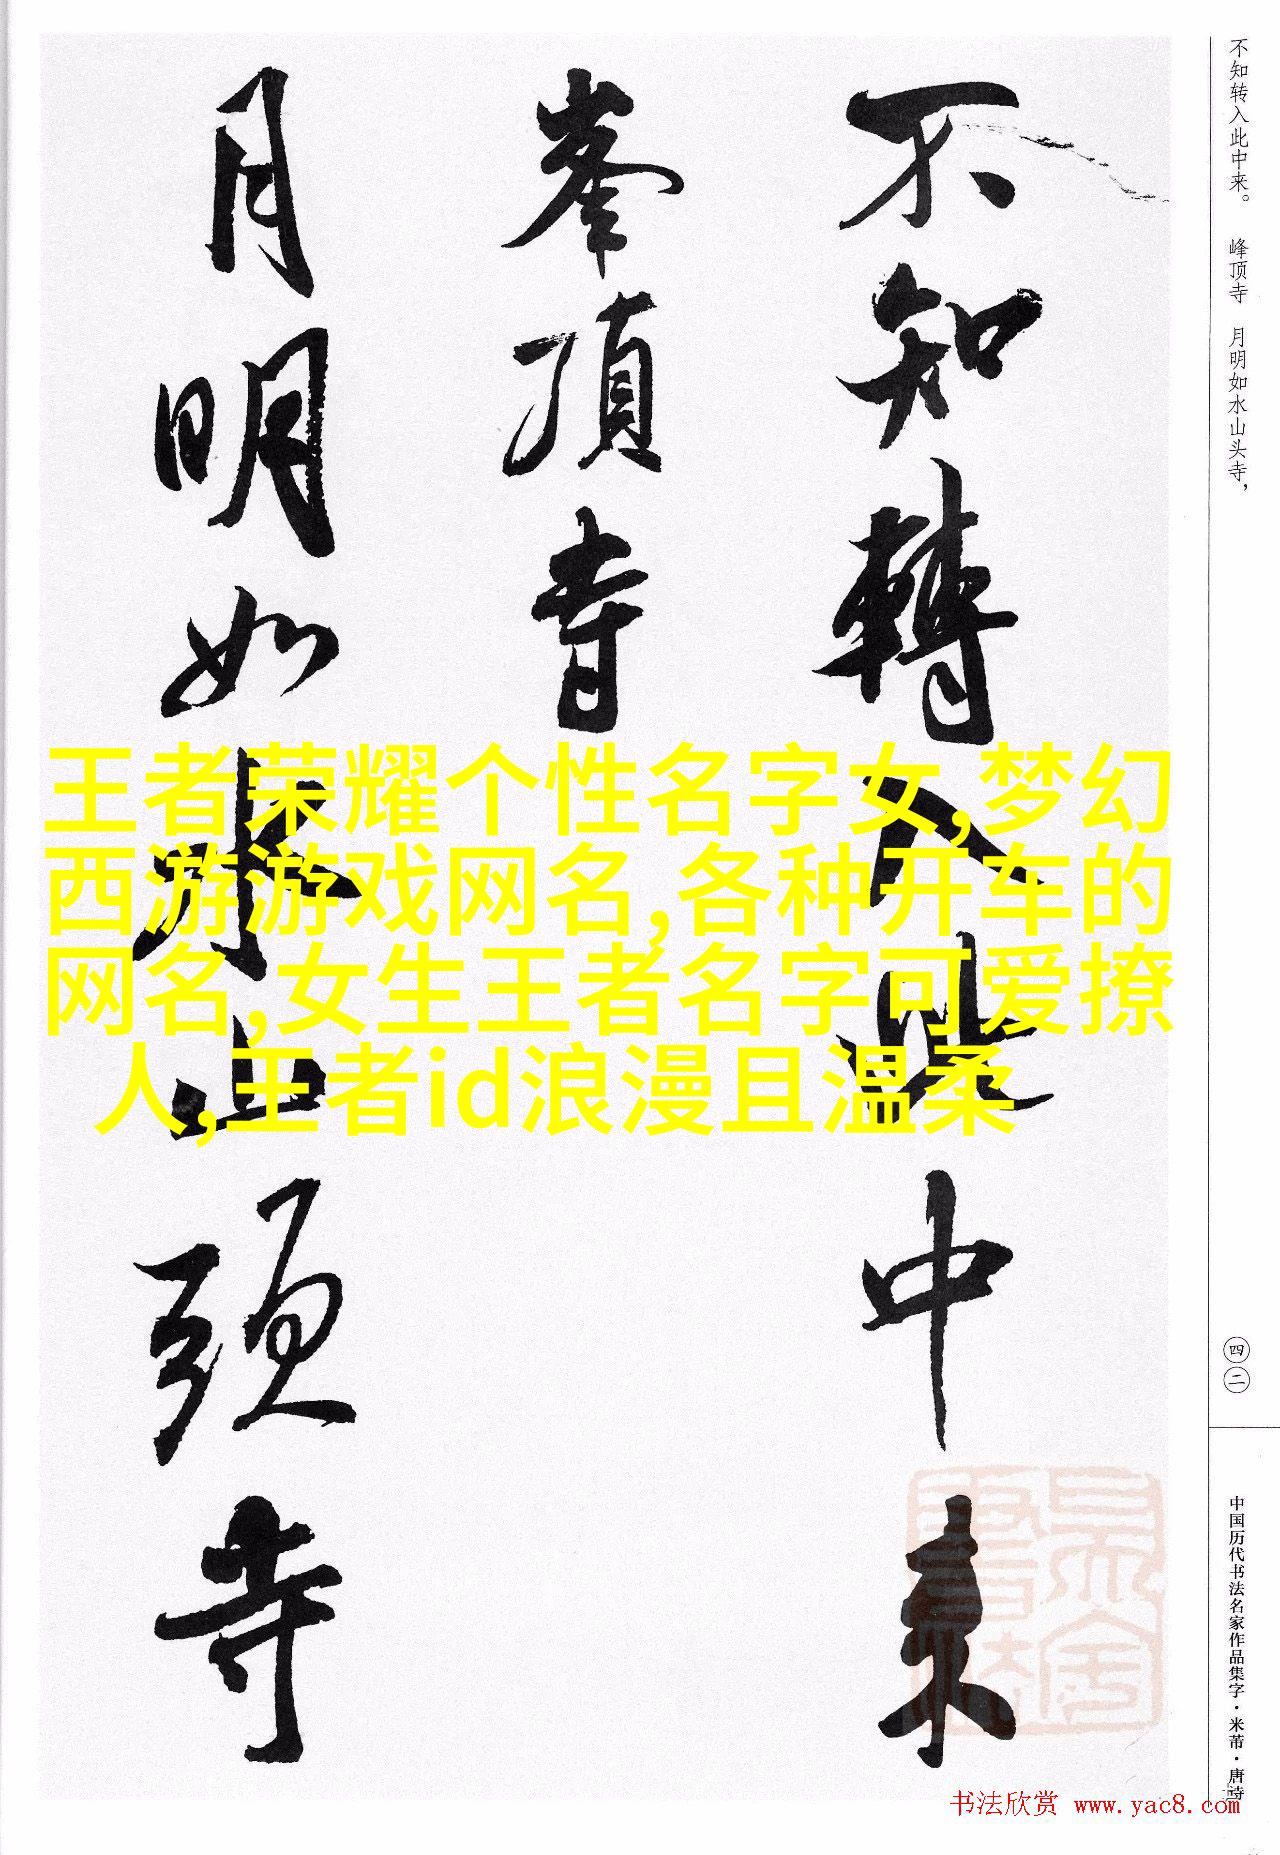 不知转入此中来。 峰顶寺 月明如水山头寺，
不知轉入此中来
峯頂寺
月明如水山頭寺
王者荣耀个性名字女,梦幻
西游游戏网名,各种开车的
网名,女生王者名字可爱撩
人,王者id浪漫且温柔
四二
中国历代书法名家作品集字·米芾·唐诗
书法欣赏 www.yac8.com